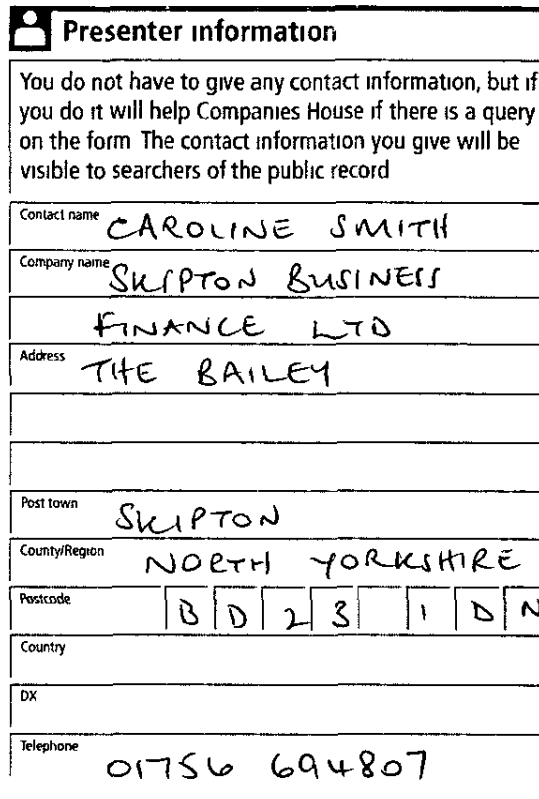 Presenter information
You do not have to give any contact information, but if
you do it will help Companies House if there is a query
on the form The contact information you give will be
visible to searchers of the public record
Contact name CAROLINE SMITH
Company name SKIPTON BUSINESS
FINANCE LTD
Address THE BAILEY
Post town SKIPTON
County/Region NORTH YORKSHIRE
Postcode B D 2 3 1 D N
Country
DX
Telephone 01756 694807